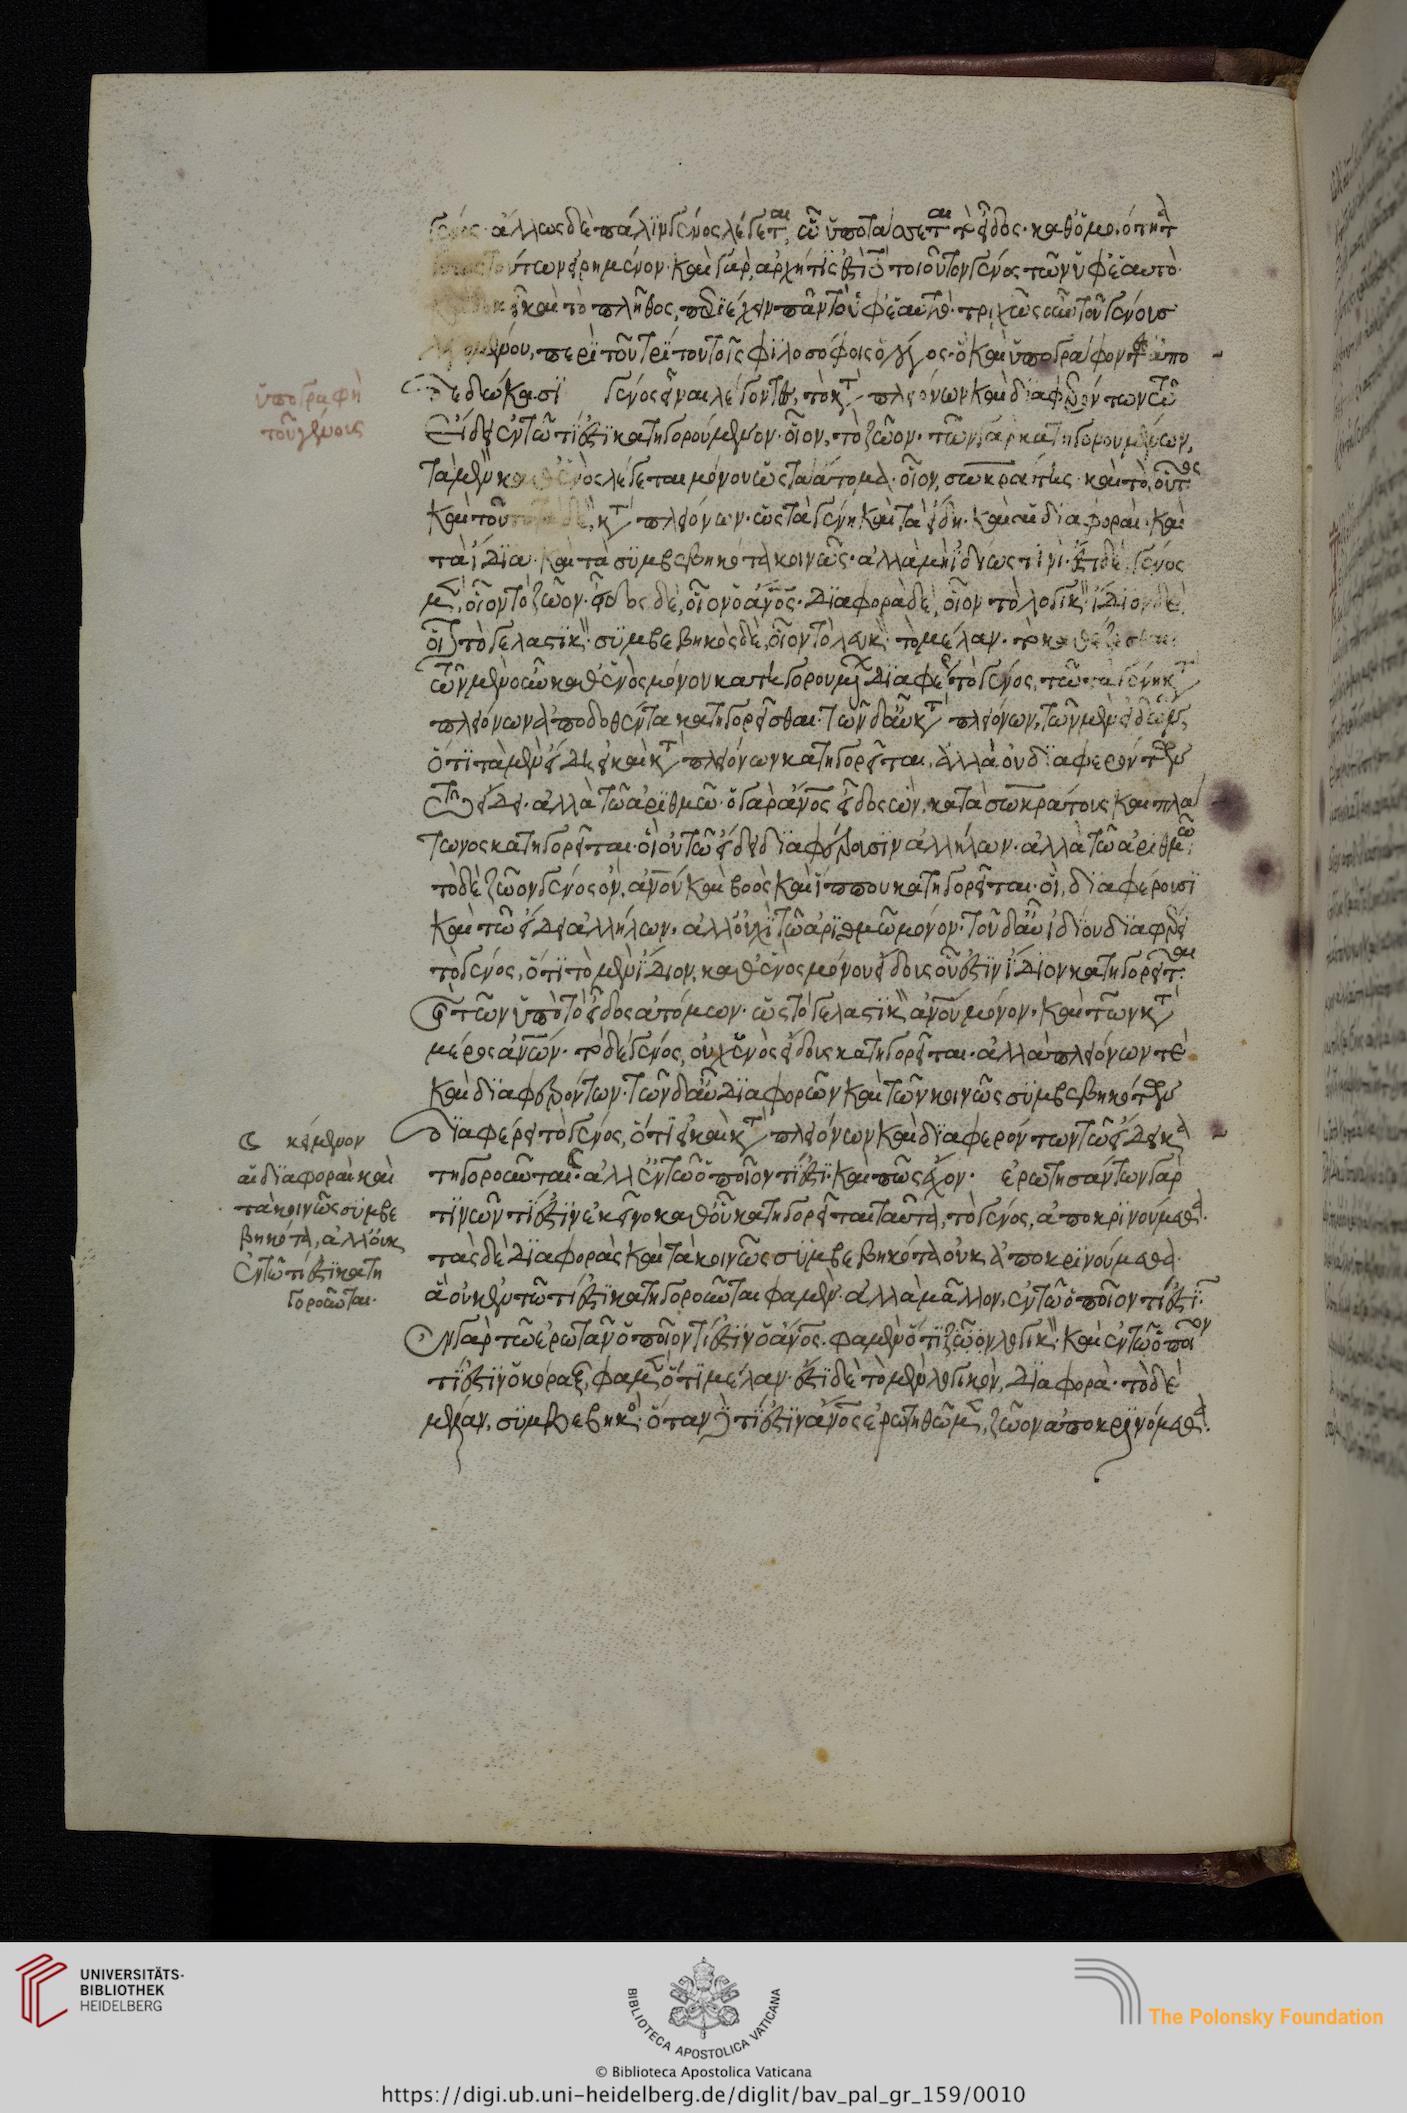 γένος· ἄλλως δὲ πάλιν γένος λέγεται, ὧ ὑποτάσσεται τὸ εἶδος· καθ' ὁμοιότητα
τούτων εἰρημένον· καὶ γὰρ ἀρχή τίς ἐστι τὸ τοιοῦτον γένος τῶν ὑφ' ἑαυτό·
καὶ τὸ πλῆθος, περιέχειν πᾶν τὸ ὑφ' ἑαυτό· τριχῶς οὖν τοῦ γένους
λεγομένου, περὶ τοῦ τρίτου τοῖς φιλοσόφοις ὁ λόγος· ὃ καὶ ὑπογράφοντες ἀπο
δεδώκασι γένος εἶναι λέγοντες, τὸ κατὰ πλειόνων καὶ διαφερόντων τῶ
εἴδει ἐν τῶ τί ἐστι κατηγορούμενον· οἷον, τὸ ζῶον· τῶν γὰρ κατηγορουμένων,
τὰ μὲν καθ' ἑνὸς λέγεται μόνου ὡς τὰ ἄτομα· οἷον, σωκράτης· καὶ τὸ, οὗτος
καὶ τοῦτο· τὰ δὲ, κατὰ πλειόνων· ὡς τὰ γένη καὶ τὰ εἴδη· καὶ αἱ διαφοραὶ· καὶ
τὰ ἴδια· καὶ τὰ συμβεβηκότα κοινῶς· ἀλλὰ μὴ ἰδίως τινί· ἔστι δὲ γένος
μὲν, οἷον τὸ ζῶον· εἶδος δὲ, οἷον ὁ ἄνος· διαφορὰ δὲ, οἷον τὸ λογικόν· ἴδιον δὲ,
οἷον τὸ γελαστικόν· συμβεβηκὸς δὲ, οἷον τὸ λευκόν· τὸ μέλαν· τὸ καθέζεσθαι·
τῶν μὲν οὖν καθ' ἑνὸς μόνου κατηγορουμένων διαφέρει τὸ γένος, τῶ τὰ γένη κατὰ
πλειόνων ἀποδοθέντα κατηγορεῖσθαι· τῶν δ' αὖ κατὰ πλειόνων, τῶν μὲν εἰδῶν,
ὅτι τὰ μὲν εἴδη εἰ καὶ κατὰ πλειόνων κατηγορεῖται, ἀλλὰ οὐ διαφερόντων
τῶ εἴδει· ἀλλὰ τῶ ἀριθμῶ· ὁ γὰρ ἄνος εἶδος ὢν, κατὰ σωκράτους καὶ πλά
τωνος κατηγορεῖται· οἳ οὐ τῶ εἴδει διαφέρουσιν ἀλλήλων· ἀλλὰ τῶ ἀριθμῶ·
τὸ δὲ ζῶον γένος ὂν, ἀνου καὶ βοὸς καὶ ἵππου κατηγορεῖται· οἳ, διαφέρουσι
καὶ τῶ εἴδει ἀλλήλων· ἀλλ' οὐχὶ τῶ ἀριθμῶ μόνον· τοῦ δ' αὖ ἰδίου διαφέρει
τὸ γένος, ὅτι τὸ μὲν ἴδιον, καθ' ἑνὸς μόνου εἴδους οὗ ἐστιν ἴδιον κατηγορεῖται·
καὶ τῶν ὑπὸ τὸ εἶδος ἀτόμων· ὡς τὸ γελαστικὸν ἀνου μόνον· καὶ τῶν κατὰ
μέρος ἀνων· τὸ δὲ γένος, οὐχ ἑνὸς εἴδους κατηγορεῖται· ἀλλὰ πλειόνων τὲ
καὶ διαφερόντων· τῶν δ' αὖ διαφορῶν καὶ τῶν κοινῶς συμβεβηκότων
διαφέρει τὸ γένος, ὅτι εἰ καὶ κατὰ πλειόνων καὶ διαφερόντων τῶ εἴδει κα
τηγοροῦνται· ἀλλ' ἐν τῶ ὁποῖον τί ἐστι· καὶ πῶς ἔχον· ἐρωτησάντων γὰρ
τινῶν τί ἐστιν ἐκεῖνο καθ' οὗ κατηγορεῖται ταῦτα, τὸ γένος, ἀποκρινούμεθα·
τὰς δὲ διαφορὰς καὶ τὰ κοινῶς συμβεβηκότα οὐκ ἀποκρινούμεθα·
ἃ οὐκ ἐν τῶ τί ἐστι κατηγοροῦνται φαμὲν· ἀλλὰ μᾶλλον, ἐν τῶ ὁποῖον τί ἐστι·
ἐν γὰρ τῶ ἐρωτᾶν ὁποῖον τί ἐστιν ὁ ἄνος· φαμὲν ὅτι ζῶον λογικόν· καὶ ἐν τῶ ὁποῖον
τί ἐστιν ὁ κόραξ, φαμὲν ὅτι μέλαν· ἔστι δὲ τὸ μὲν λογικὸν, διαφορὰ· τὸ δὲ
μέλαν, συμβεβηκός· ὅταν δὲ τί ἐστιν ἄνος ἐρωτηθῶμεν, ζῶον ἀποκρινόμεθα·
ὑπογραφὴ
τοῦ γένους
κείμενον
αἱ διαφοραὶ καὶ
τὰ κοινῶς συμβε
βηκότα, ἀλλ' οὐκ
ἐν τῶ τί ἐστι κατη
γοροῦνται·
UNIVERSITÄTS-
BIBLIOTHEK
HEIDELBERG
BIBLIOTECA APOSTOLICA VATICANA
The Polonsky Foundation
© Biblioteca Apostolica Vaticana
https://digi.ub.uni-heidelberg.de/diglit/bav_pal_gr_159/0010